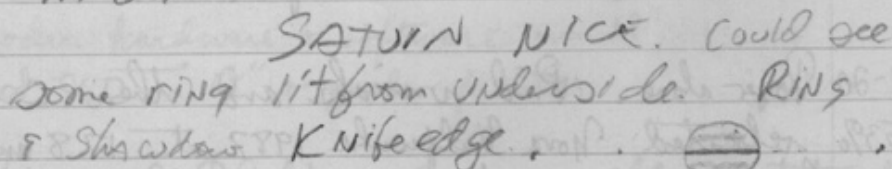 SATURN NICE. Could see
some ring lit from underside. RING
& Shawdow Knife edge.